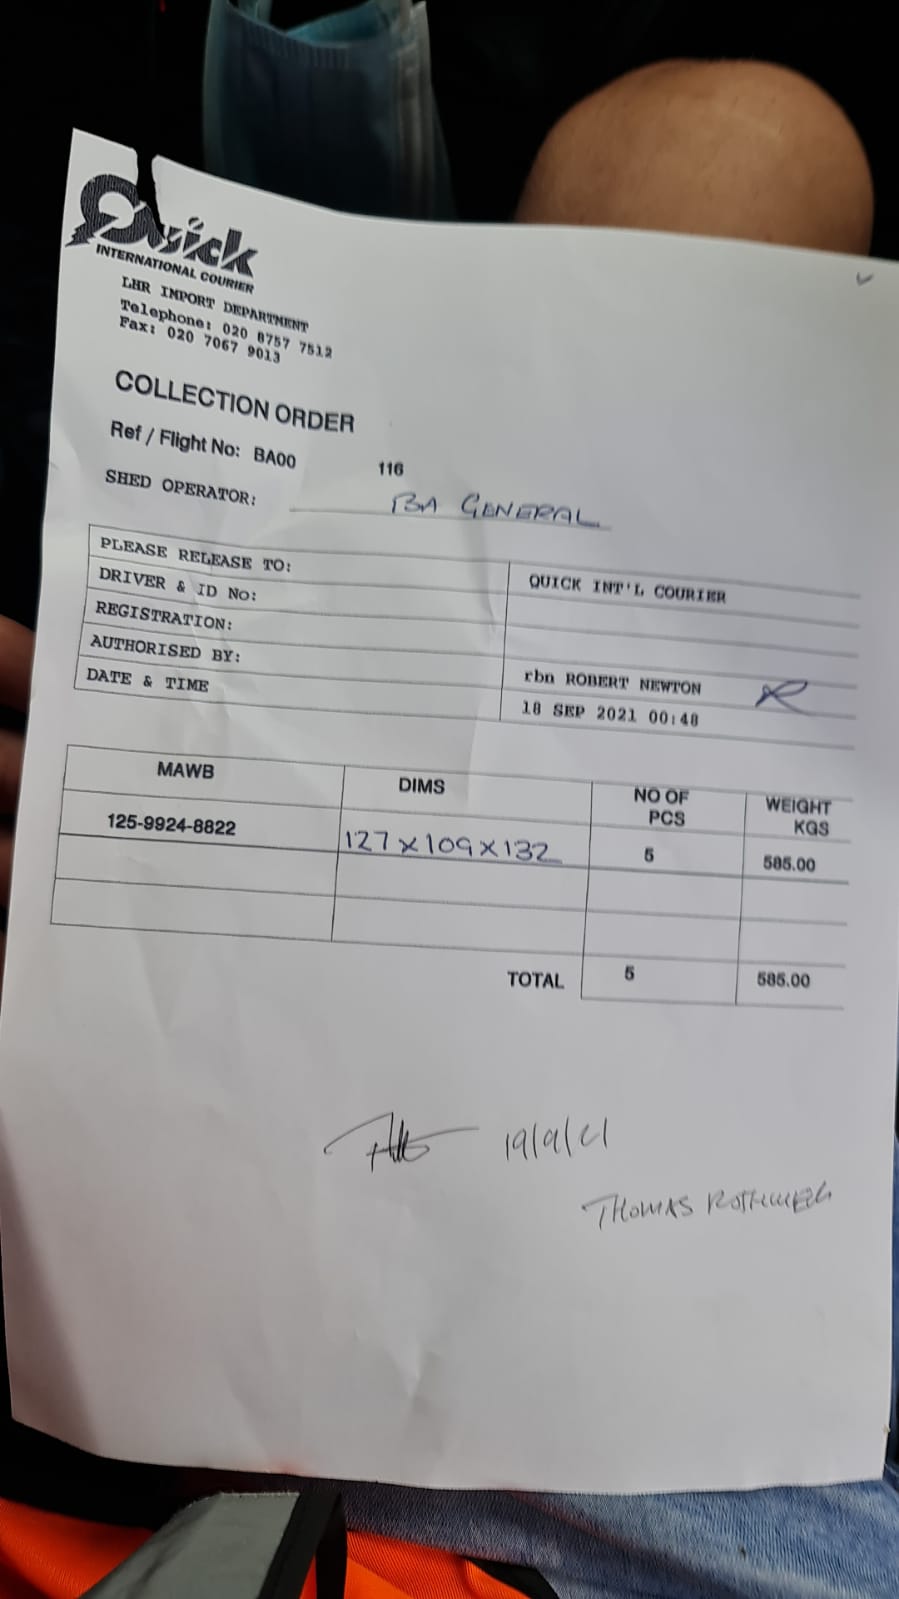 Quick
INTERNATIONAL COURIER
LHR IMPORT DEPARTMENT
Telephone: 020 8757 7512
Fax: 020 7067 9013
COLLECTION ORDER
Ref / Flight No: BA00 116
SHED OPERATOR: BA GENERAL
PLEASE RELEASE TO: QUICK INT'L COURIER
DRIVER & ID No:
REGISTRATION:
AUTHORISED BY: rbn ROBERT NEWTON
DATE & TIME 18 SEP 2021 00:48
MAWB DIMS NO OF PCS WEIGHT KGS
125-9924-8822 127x109x132 5 585.00
TOTAL 5 585.00
19/9/21
THOMAS